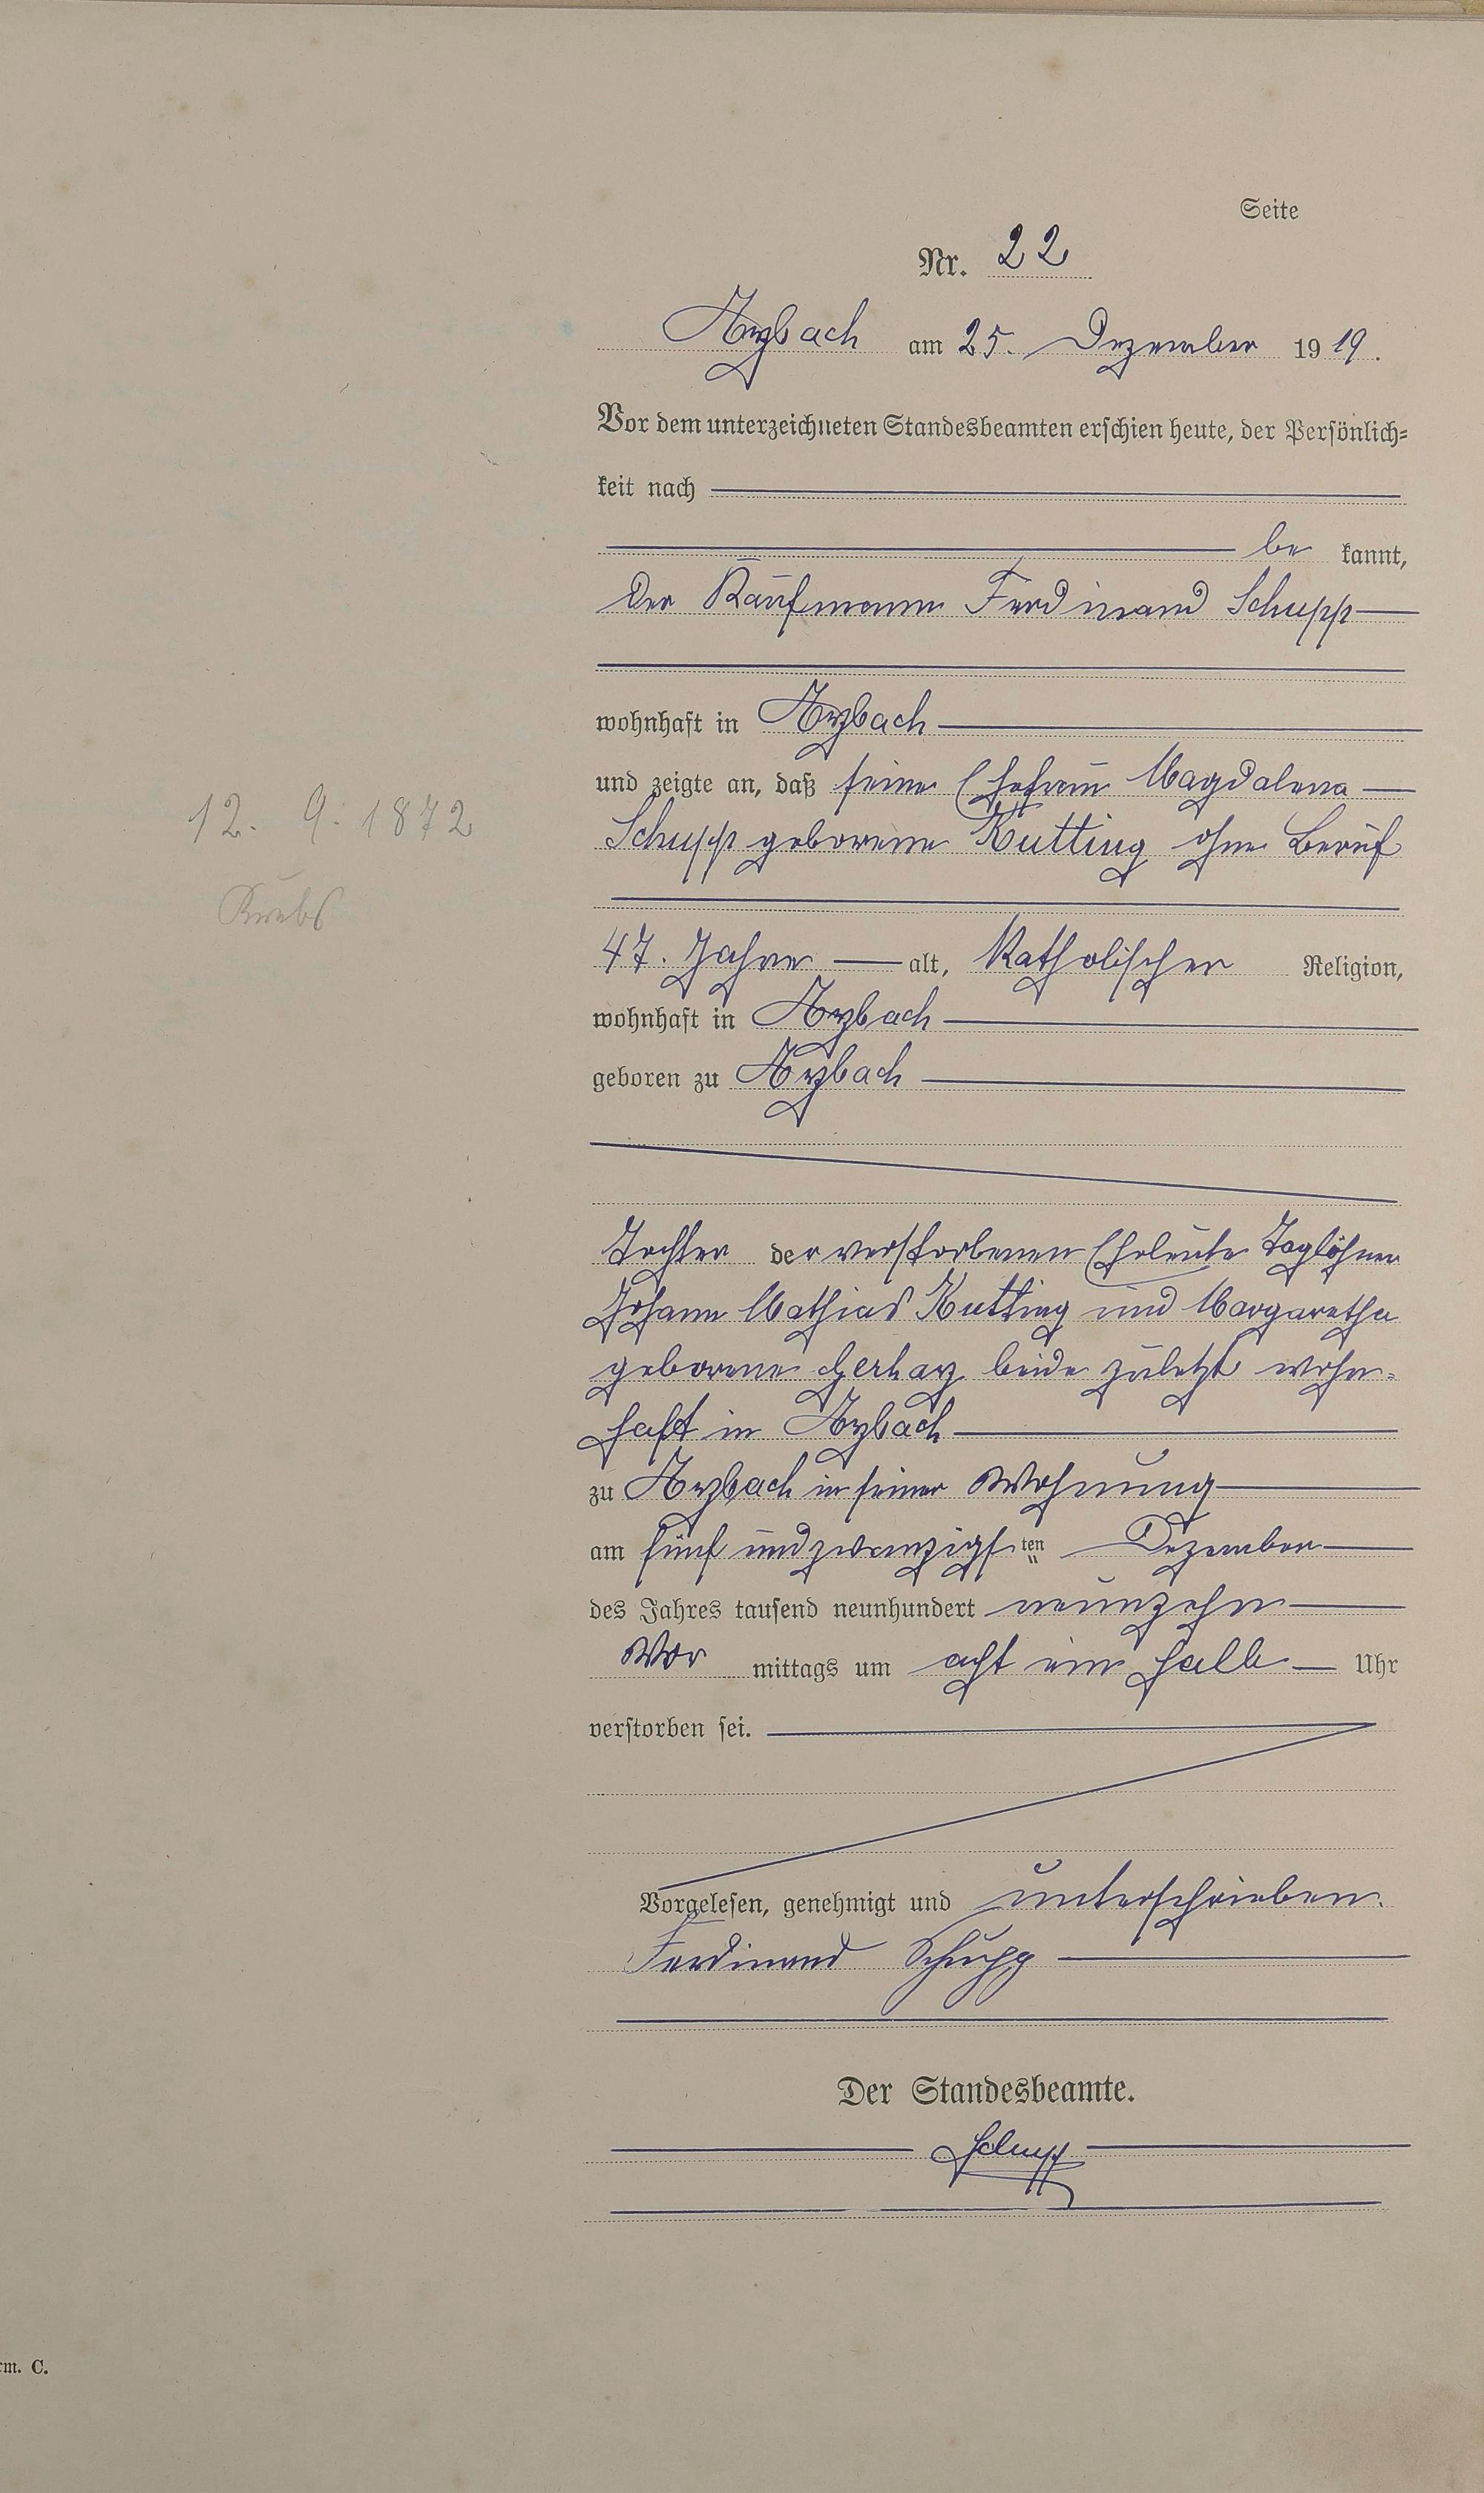 Seite
Nr. 22
Arzbach am 25. Dezember 1919.
Vor dem unterzeichneten Standesbeamten erschien heute, der Persönlich=
keit nach
be kannt,
der Kaufmann Ferdinand Schupp
wohnhaft in Arzbach
und zeigte an, daß seine Ehefrau Magdalena
12. 9. 1872
Schupp geborene Kutting ohne Beruf
Krebs
47. Jahre alt, Katholischer Religion,
wohnhaft in Arzbach
geboren zu Arzbach
Tochter der verstorbenen Eheleute Taglöhner
Johann Mathias Kutting und Margaretha
geborene Gerharz beide zuletzt wohn=
haft in Arzbach
zu Arzbach in seiner Wohnung
am fünf und zwanzigsten Dezember
des Jahres tausend neunhundert neunzehn
Vor mittags um acht ein halb Uhr
verstorben sei.
Vorgelesen, genehmigt und unterschrieben.
Ferdinand Schupp
Der Standesbeamte.
Schupp
rm. C.